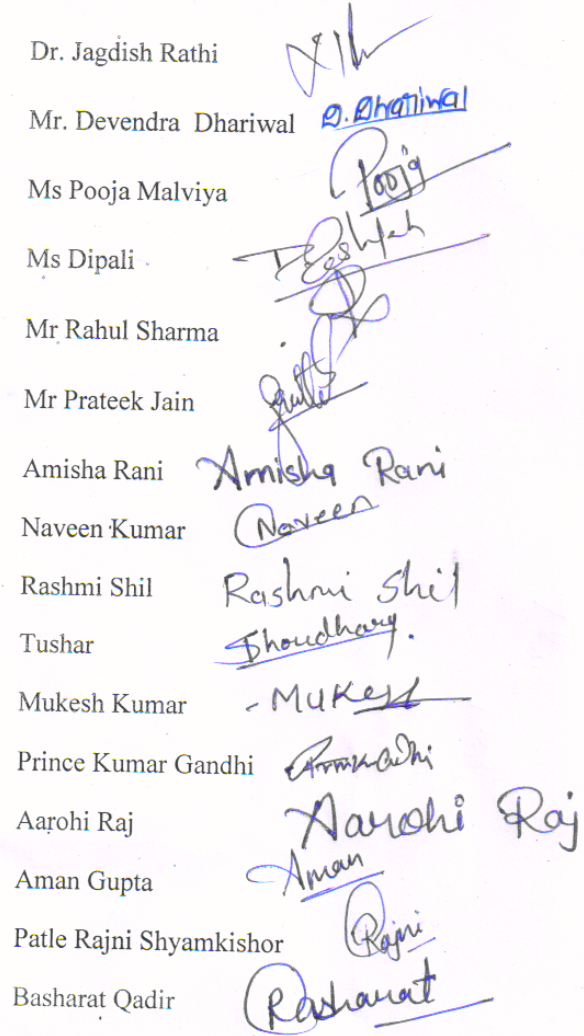 Dr. Jagdish Rathi
Mr. Devendra Dhariwal D. Dhariwal
Ms Pooja Malviya Pooja
Ms Dipali
Mr Rahul Sharma
Mr Prateek Jain
Amisha Rani Amisha Rani
Naveen Kumar Naveen
Rashmi Shil Rashmi Shil
Tushar
Mukesh Kumar - Mukesh
Prince Kumar Gandhi
Aarohi Raj Aarohi Raj
Aman Gupta Aman
Patle Rajni Shyamkishor Rajni
Basharat Qadir Basharat